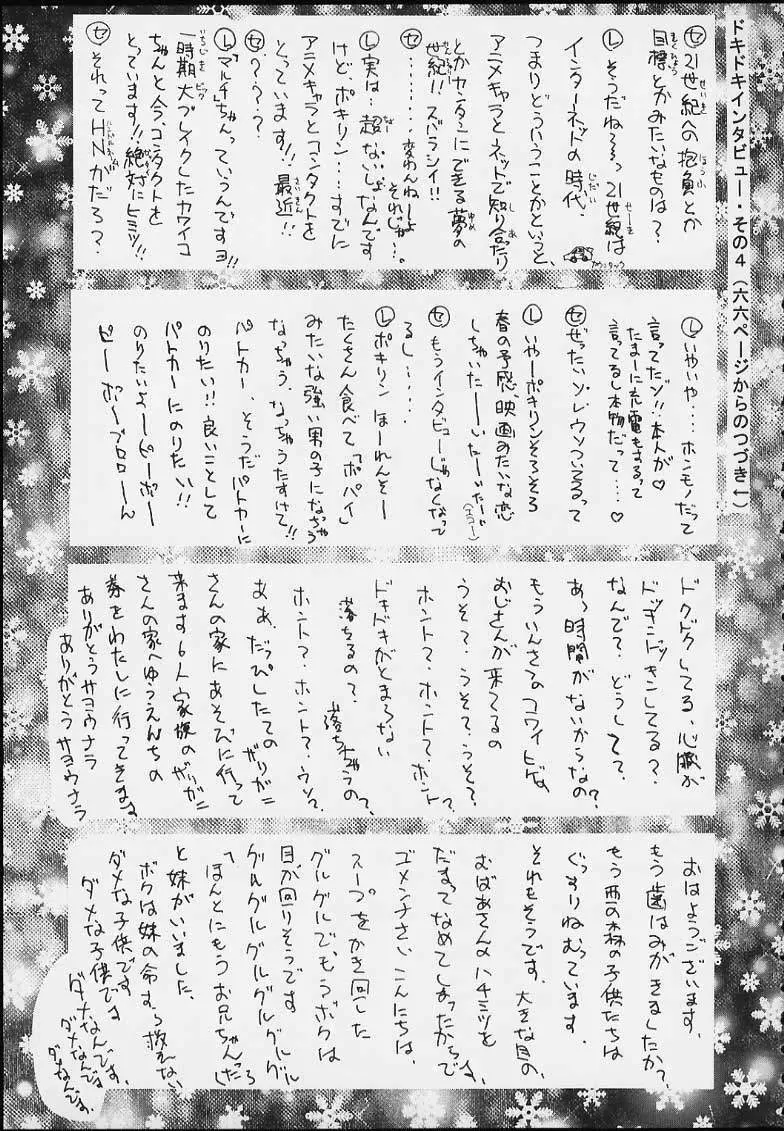 ドキドキインタビュー・その4(六六ページからのつづき↓)
㋝21世紀への抱負とか
目標とかみたいなものは?
㋹そうだね〜〜っ 21世紀は
インターネットの時代、
つまりどういうことかというと、
アニメキャラとネットで知り合ったり
とかカンタンにできる夢の
世紀!! ズバラシイ!!
㋝………変わんねーよ
それじゃ…。
㋹実は…超ないしょなんです
けど、ポキリン…すでに
アニメキャラとコンタクトを
とっています!! 最近!!
㋝???
㋹「マルチ」ちゃんっていうんですョ!!
一時期大ブレイクしたカワイコ
ちゃんと今、コンタクトを
とっています!! 絶対にヒミツ!!
㋝それってHNがだろ?
㋹いやいや…ホンモノだって
言ってたゾ!! 本人が♡
たまーに充電もするって
言ってるし本物だって…♡
㋝ぜったいソレウソついてるって
㋹いやーポキリンそろそろ
春の予感、映画みたいな恋
しちゃいたーーいなーいなーい(エコー)
㋝もうインタビューじゃなくなって
るし……。
㋹ポキリン ほーれんそー
たくさん食べて「ポパイ」
みたいな強い男の子になっちゃう
なっちゃう、なっちゃうたすけて!!
パトカー、そうだパトカーに
のりたい!! 良いことして
パトカーにのりたい!!
のりたいよーピーポー
ピーポーブロローん
ドクドクしてる、心臓が
ドッキンドッキンしてる?
なんで?どうして?
あっ時間がないからなの?
もういんさつのコワイヒゲの
おじさんが来てるの
うそ?うそ?うそ?
ホント?ホント?ホント?
ドキドキがとまらない
落ちるの?落ちちゃうの?
ホント?ホント?ウソ?
ああ、だっぴしたての ザリガニ
さんの家にあそびに行って
来ます6人家族のザリガニ
さんの家へゆうえんちの
券をわたしに行ってきます
ありがとうサヨウナラ
ありがとうサヨウナラ
おはようございます、
もう歯はみがきましたか?
もう西の森の子供たちは
ぐっすりねむっています、
それもそうです、大きな目の、
おばあさんのハチミツを
だまってなめてしまったからです、
ゴメンナさい、こんにちは、
スープをかき回した
グルグルでもうボクは
目が回りそうです
グルグルグルグルグルグル
「ほんとにもうお兄ちゃんたら」
と妹がいいました、
ボクは妹の命すら救えない
ダメな子供です
ダメな子供です
ダメなんです、
ダメなんです、
ダメなんです、